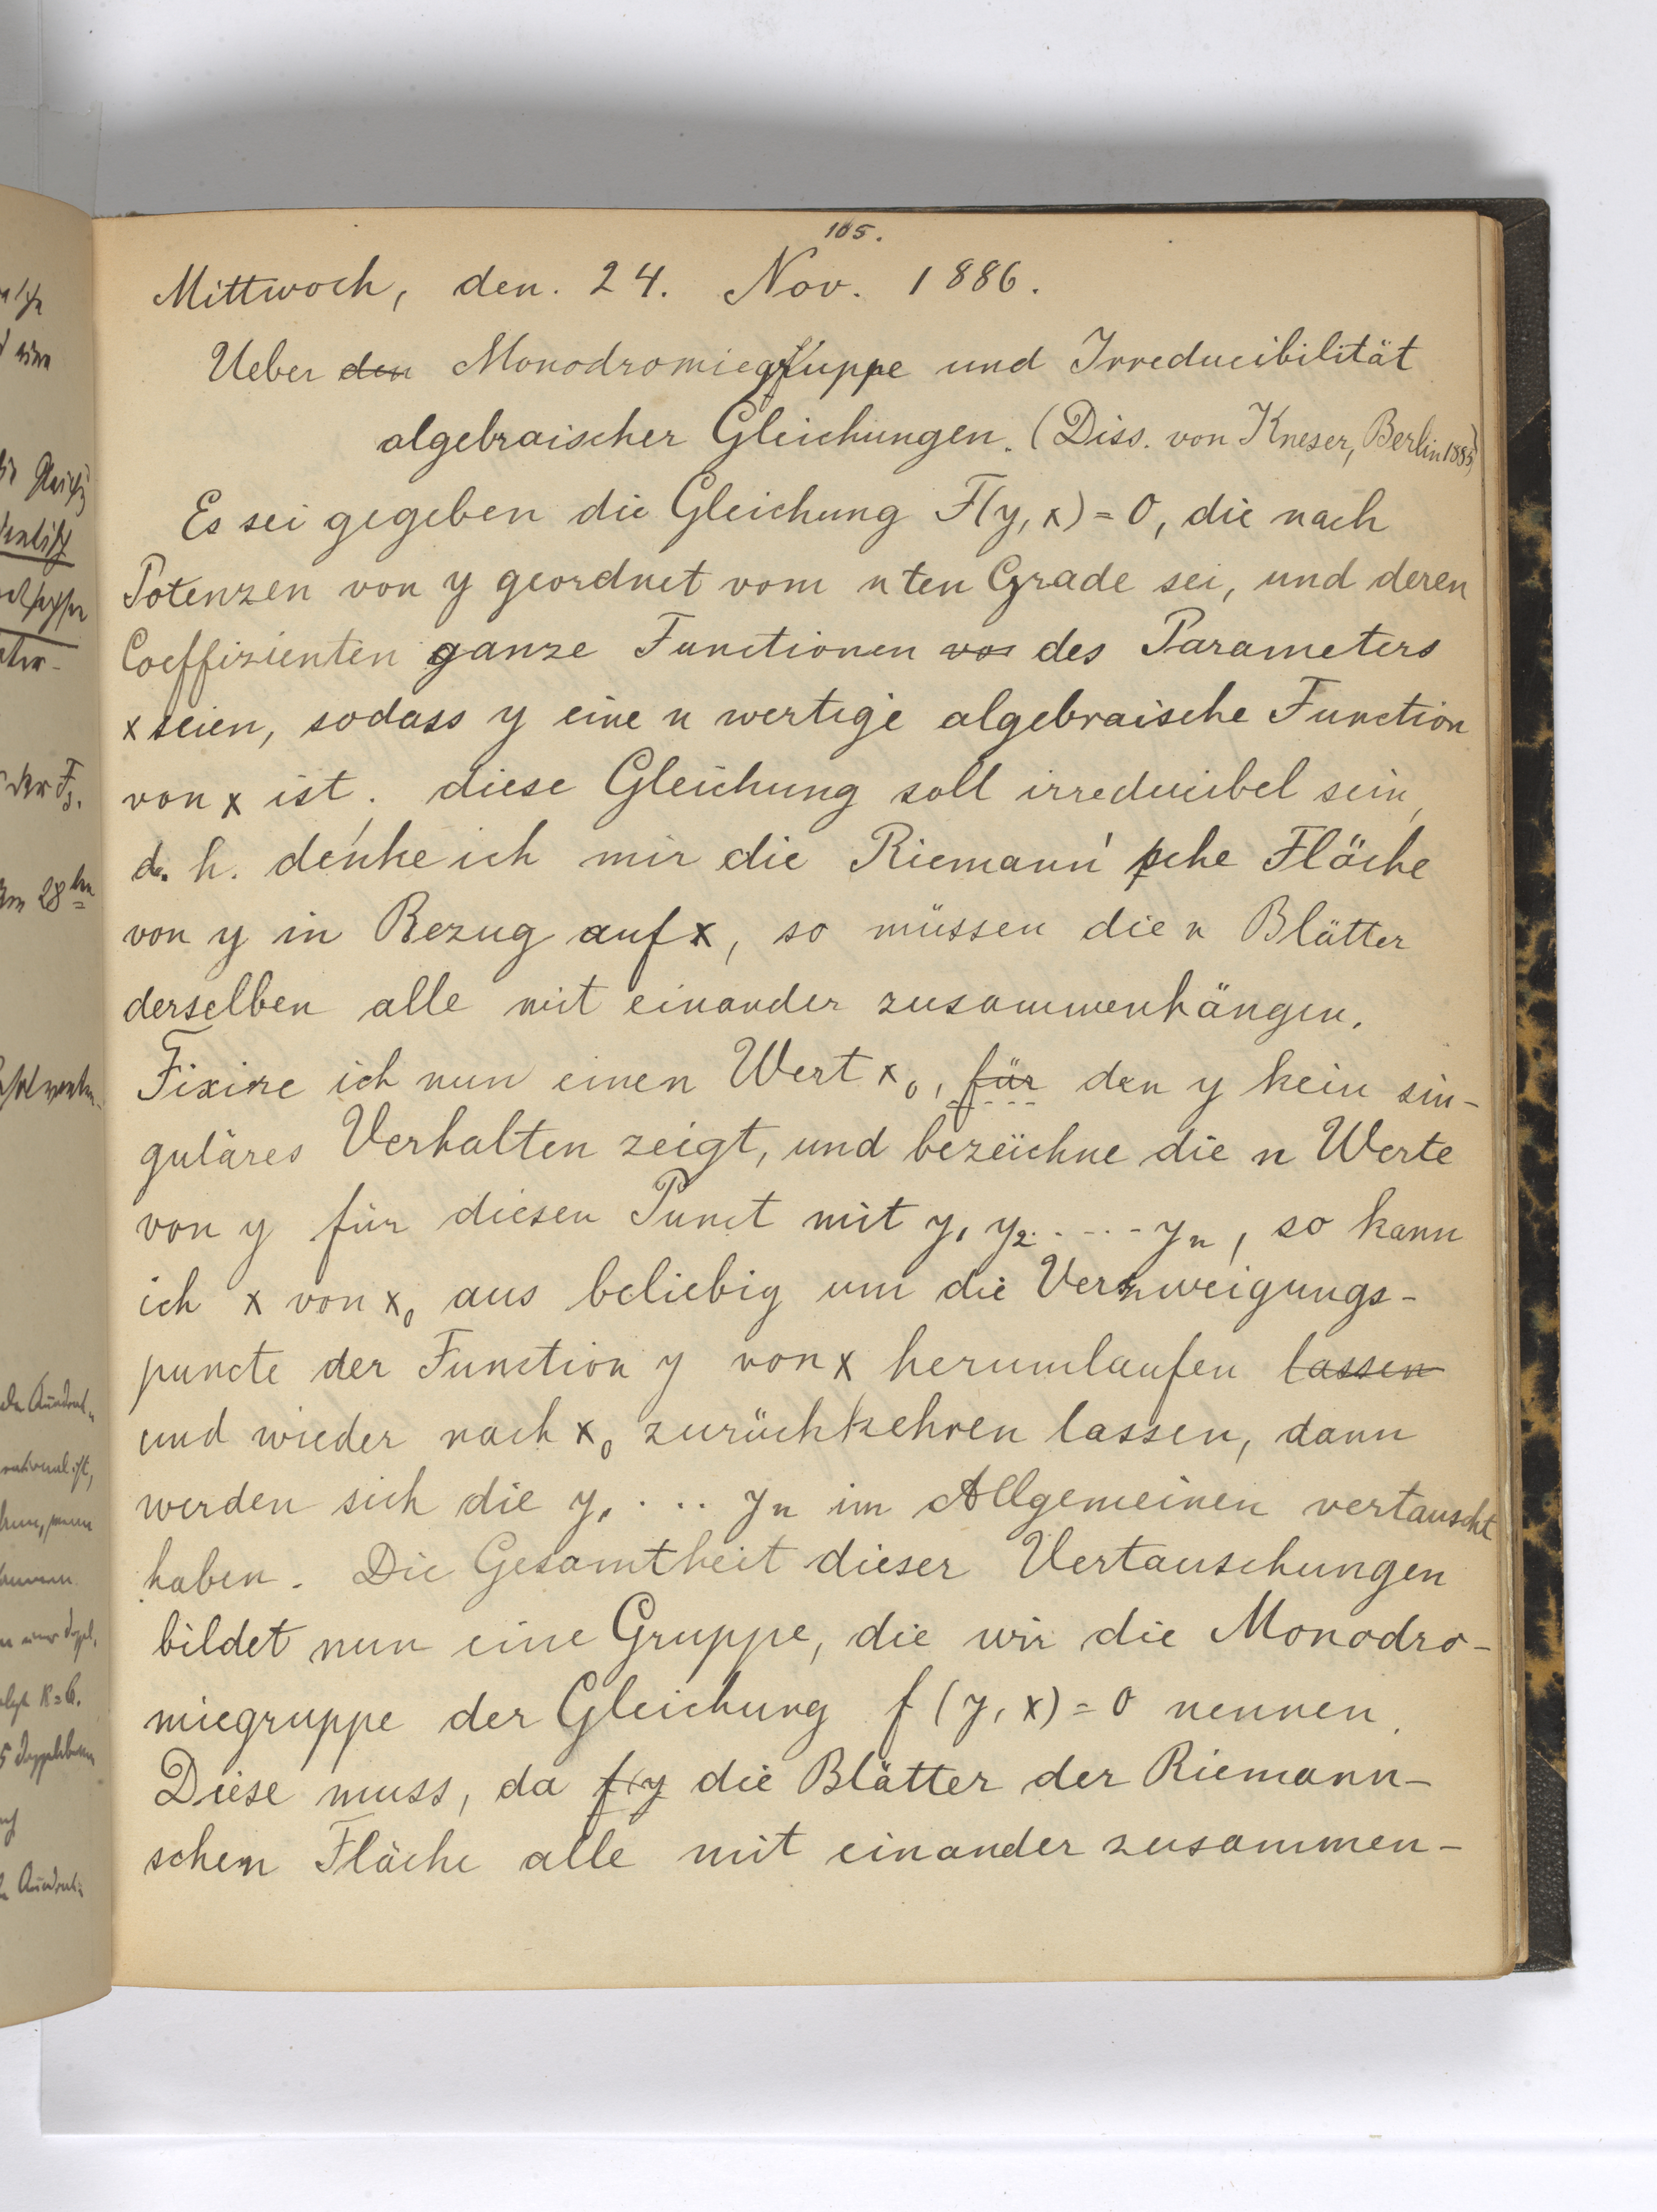 105.
Mittwoch, den. 24. Nov. 1886.
Ueber den Monodromiegruppe und Irreducibilität
algebraischer Gleichungen. (Diss. von Kneser, Berlin 1885)
Es sei gegeben die Gleichung F(y, x) = 0, die nach
Potenzen von y geordnet vom n ten Grade sei, und deren
Coeffizienten ganze Functionen von des Parameters
x seien, sodass y eine n wertige algebraische Function
von x ist. diese Gleichung soll irreducibel sein,
d. h. denke ich mir die Riemann'sche Fläche
von y in Bezug auf x, so müssen die n Blätter
derselben alle mit einander zusammenhängen.
Fixire ich nun einen Wert x₀, für den y kein sin-
guläres Verhalten zeigt, und bezeichne die n Werte
von y für diesen Punct mit y₁ y₂ . . . . yₙ, so kann
ich x von x₀ aus beliebig um die Verzweigungs-
puncte der Function y von x herumlaufen lassen
und wieder nach x₀ zurückkehren lassen, dann
werden sich die y₁ . . . yₙ im Allgemeinen vertauscht
haben. Die Gesamtheit dieser Vertauschungen
bildet nun eine Gruppe, die wir die Monodro-
miegruppe der Gleichung f (y, x) = 0 nennen.
Diese muss, da f(y die Blätter der Riemann-
schen Fläche alle mit einander zusammen-